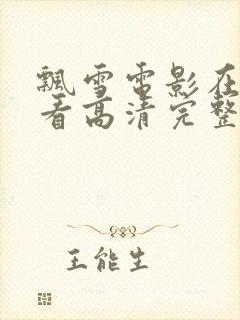 飘雪电影在
看高清完整
王能生